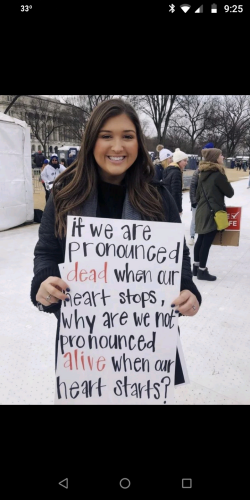 33°
9:25
if we are
pronounced
dead when our
heart stops,
why are we not
pronounced
alive when our
heart starts?
LIFE